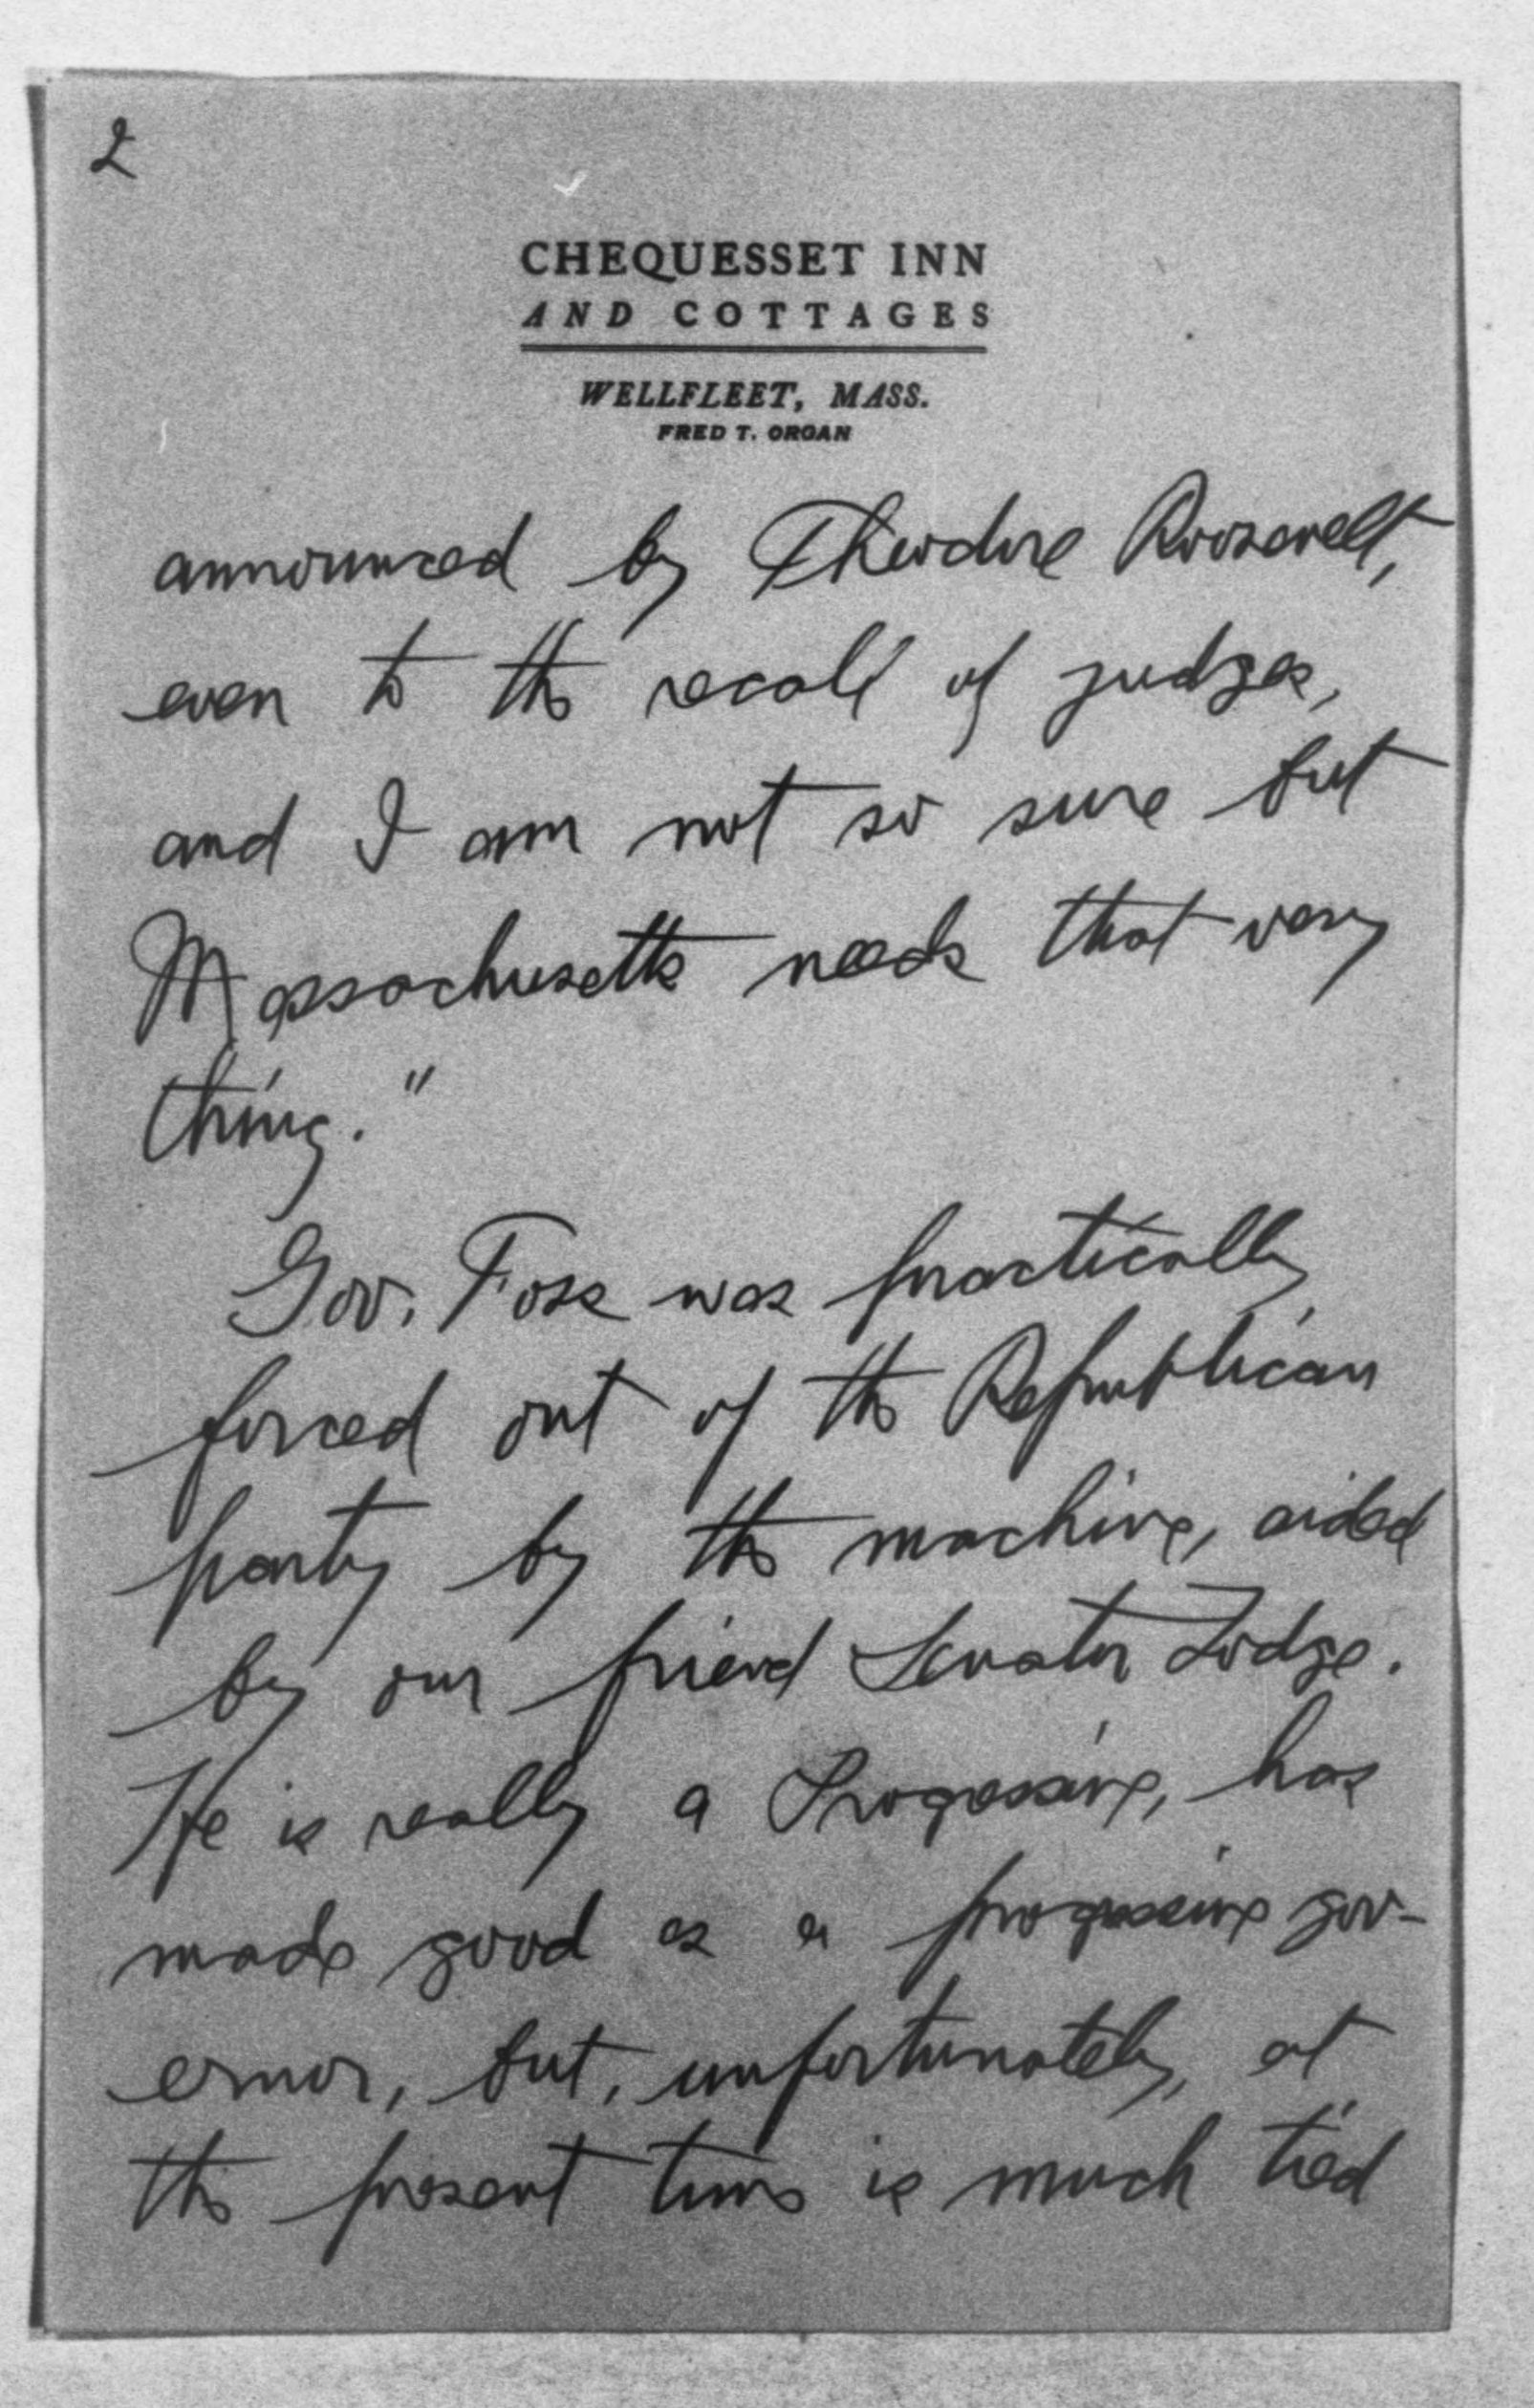 2
CHEQUESSET INN
AND COTTAGES
WELLFLEET, MASS.
FRED T. ORGAN
announced by Theodore Roosevelt,
even to the recall of judges,
and I am not so sure but
Massachusetts needs that very
thing."
Gov. Foss was practically
forced out of the Republican
party by the machine, aided
by our friend Senator Lodge.
He is really a Progessive, has
made good as a progessive gov-
ernor, but, unfortunately, at
the present time is much tied